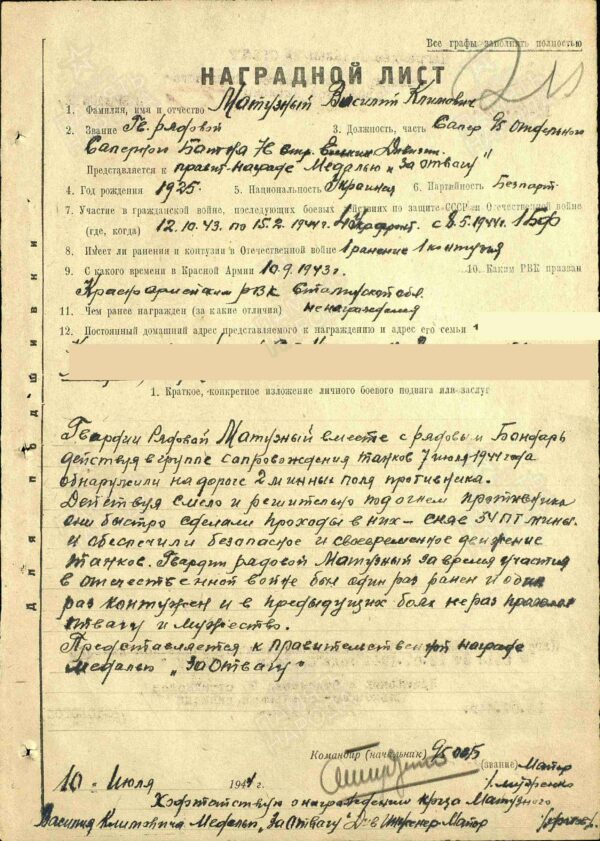 Все графы заполнять полностью
НАГРАДНОЙ ЛИСТ
1. Фамилия, имя и отчество Матузный Василий Климович
2. Звание Гв. рядовой 3. Должность, часть Сапер 95 отдельного
Саперного бат-на 76 стр. Дивизии
Представляется к правит. награде Медалью "За отвагу"
4. Год рождения 1925 5. Национальность Украинец 6. Партийность Безпарт.
7. Участие в гражданской войне, последующих боевых действиях по защите СССР и Отечественной войне
(где, когда) 12.10.43 по 15.2.1944 г. 4 Укр фронт. с 8.5.1944 г. 1 БФ
8. Имеет ли ранения и контузии в Отечественной войне 1 ранение 1 контузия
9. С какого времени в Красной Армии 10.9.1943 г. 10. Каким РВК призван
Красноармейским РВК Сталинской обл.
11. Чем ранее награжден (за какие отличия) не награждался
12. Постоянный домашний адрес представляемого к награждению и адрес его семьи
1. Краткое, конкретное изложение личного боевого подвига или заслуг
Гвардии Рядовой Матузный вместе с рядовым Бондарь
действуя в группе сопровождения танков 7 июля 1944 года
обнаружили на дороге 2 минных поля противника.
Действуя смело и решительно под огнем противника
они быстро сделали проходы в них – сняв 54 ПТ мины.
и обеспечили безопасное и своевременное движение
танков. Гвардии рядовой Матузный за время участия
в отечественной войне был один раз ранен и один
раз контужен и в предыдущих боях не раз проявлял
отвагу и мужество.
Представляется к правительственной награде
медалью "За Отвагу"
Командир (начальник) 95 ООСБ
(звание) Майор
10 Июля 1944 г.
Ходатайствую о награждении кр-ца Матузного
Василия Климовича Медалью "За Отвагу" Див Инженер Майор
для подшивки